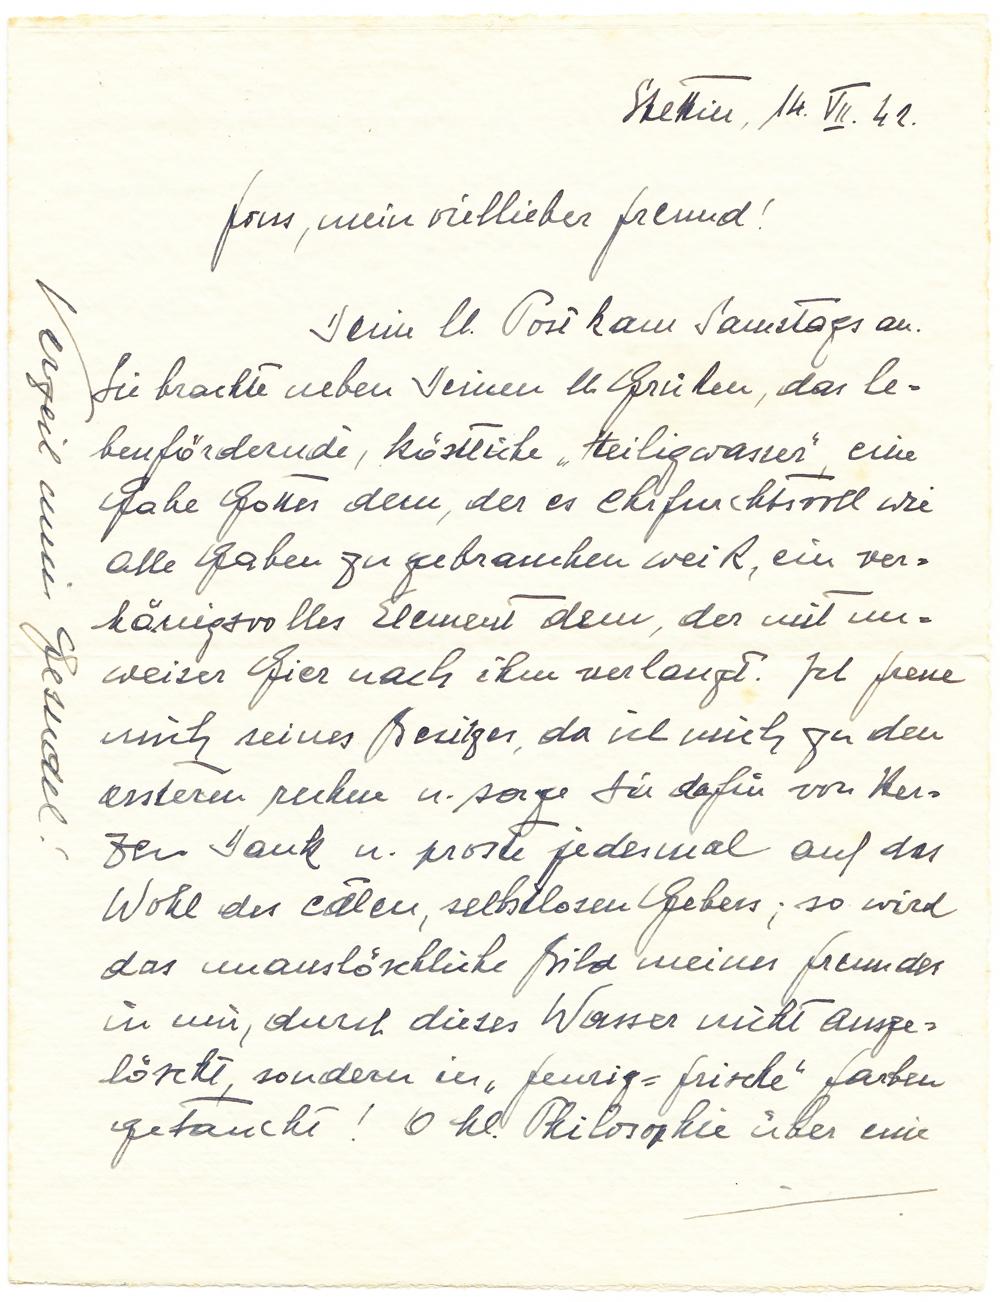 Stettin, 14. VII. 42.
Fons, mein viellieber Freund!
Dein ll. Post kam Samstags an.
Sie brachte neben Deinen ll Grüßen, das le-
benfördernde, köstliche „Heiligwasser", eine
Gabe Gottes dem, der es ehrfurchtsvoll wie
alle Gaben zu gebrauchen weiß, ein ver-
hängisvolles Element dem, der mit un-
weiser Gier nach ihm verlangt. Ich freue
mich seines Besitzes, da ich mich zu den
ersteren rechne u. sage Dir dafür von Her-
zen Dank u. proste jedesmal auf das
Wohl des edlen, selbstlosen Gebers; so wird
das unauslöschliche Bild meines Freundes
in mir, durch dieses Wasser nicht ausge-
löscht, sondern in „feurig-frische" Farben
getaucht! O kl. Philosophie über eine
Verzeih mein Gesudel!